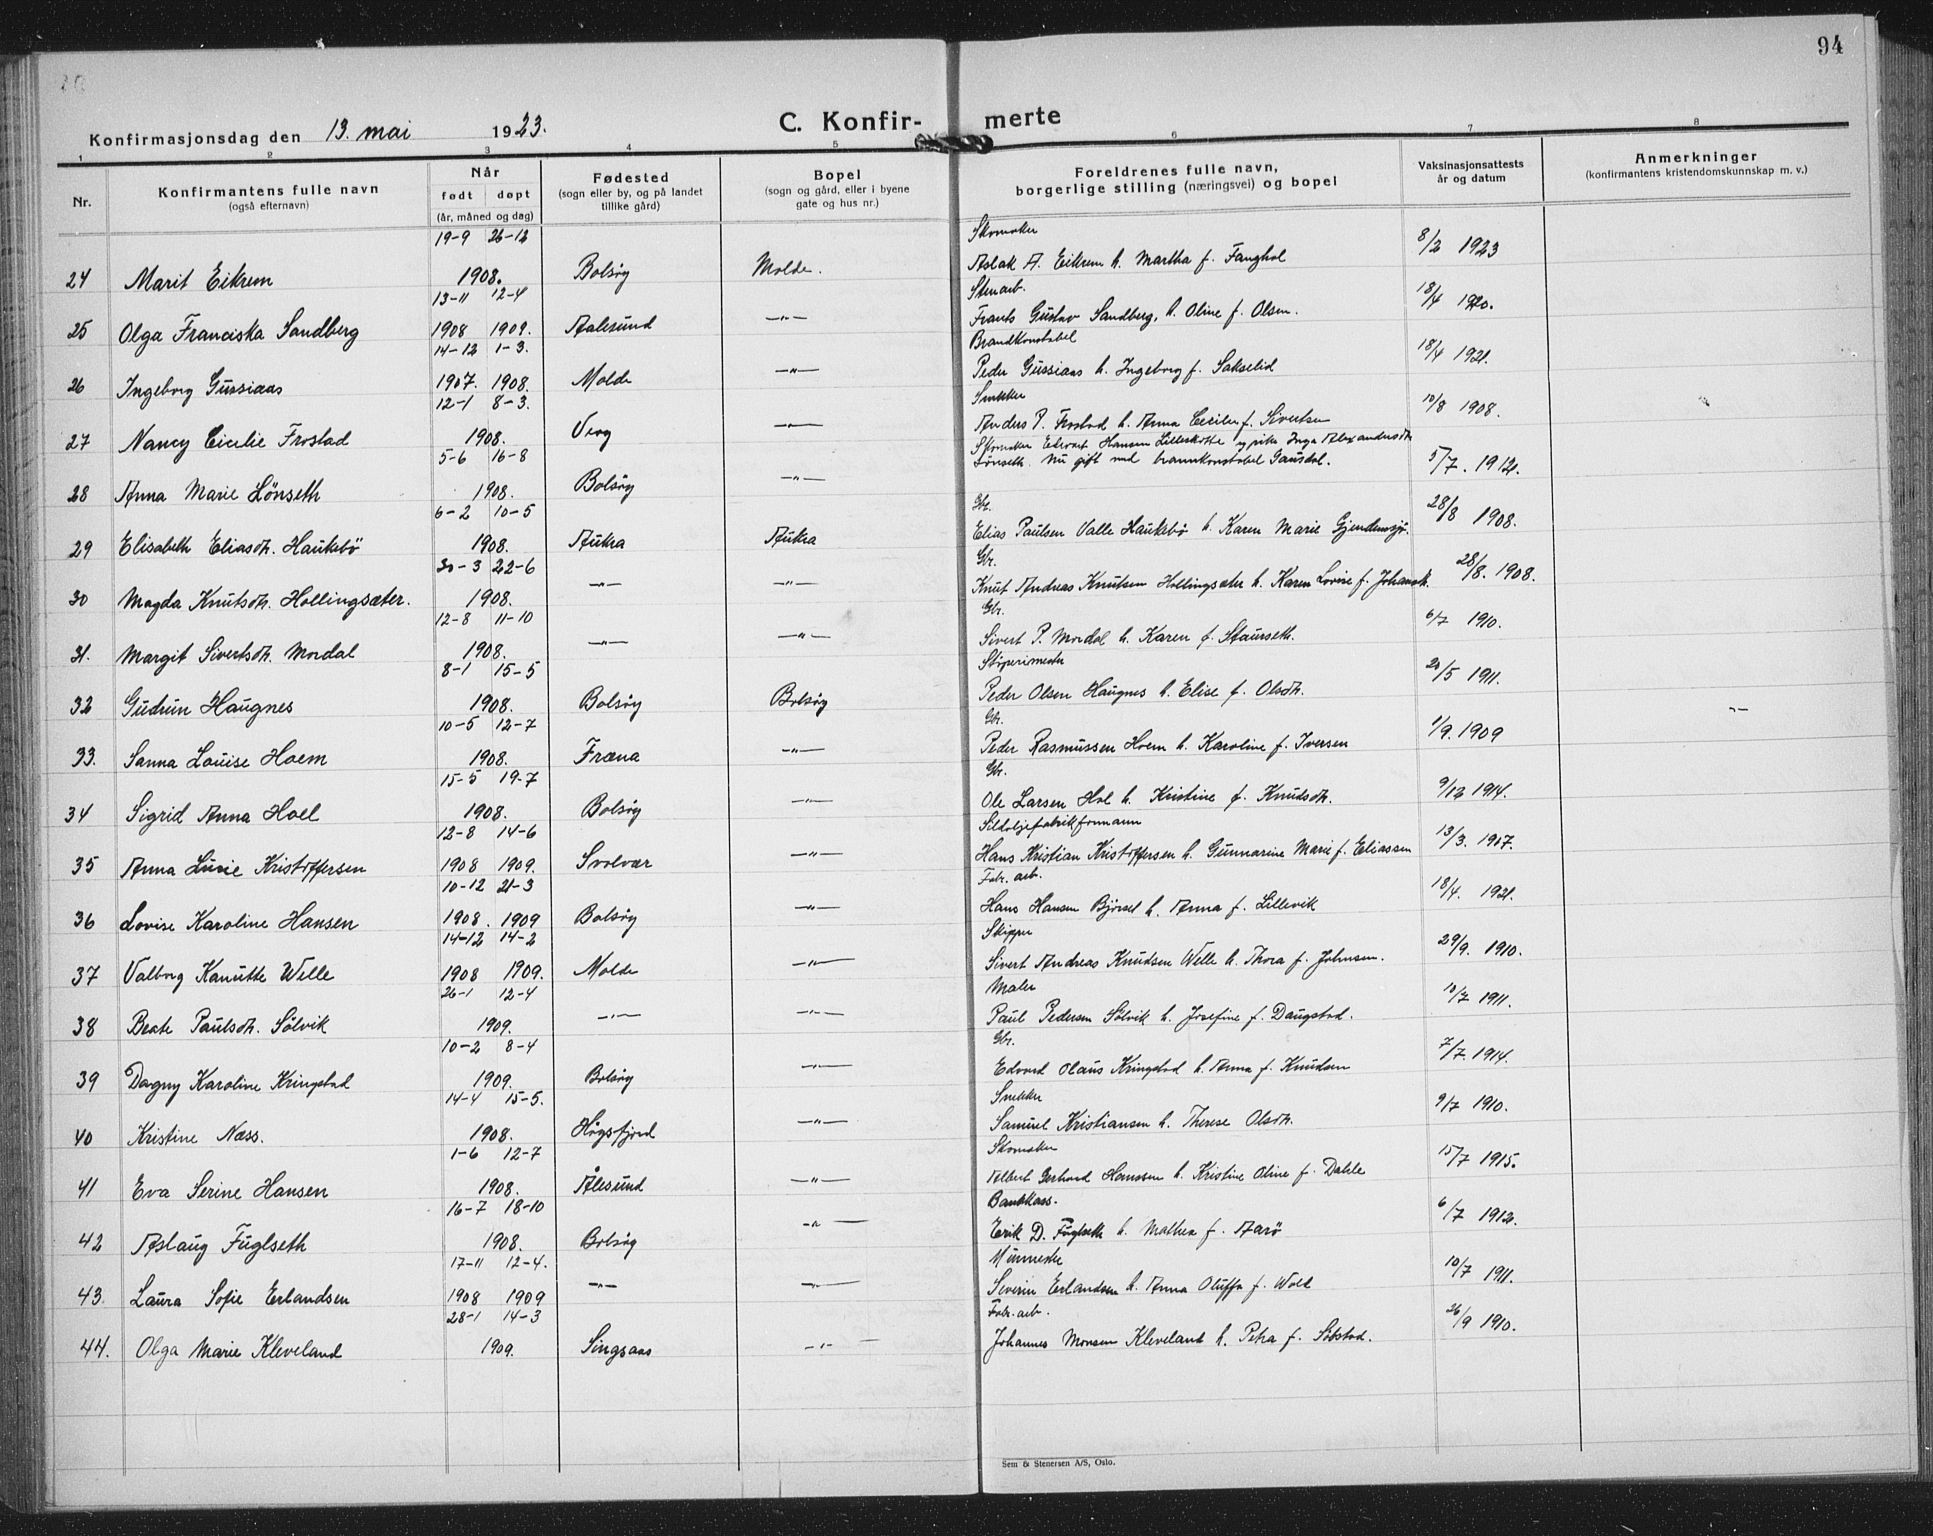 94
C. Konfirmerte
Konfirmasjonsdag den 13. mai 1923.
1 2 3 4 5 6 7 8
Nr.
Konfirmantens fulle navn
(også efternavn)
Når
født døpt
(år, måned og dag)
Fødested
(sogn eller by, og på landet
tillike gård)
Bopel
(sogn og gård, eller i byene
gate og hus nr.)
Foreldrenes fulle navn,
borgerlige stilling (næringsvei) og bopel
Vaksinasjonsattests
år og datum
Anmerkninger
(konfirmantens kristendomskunnskap m. v.)
19-9 26-12 Skomaker
24 Marit Eikrem 1908. Bolsøy Molde. Aslak A. Eikrem h. Martha f. Fanghol 8/2 1923
13-11 12-4 Stenarb.
25 Olga Franciska Sandberg 1908 1909. Aalesund —"— Frants Gustav Sandberg, h. Oline f. Olsen. 18/4 1920.
14-12 1-3. Brandkonstabel
26 Ingeborg Gussiaas 1907. 1908. Molde —"— Peder Gussiaas h. Ingeborg f. Sakselid 18/4 1921.
12-1 8-3. Snekker
27 Nancy Cicilie Frostad 1908. Verøy —"— Anders P. Frostad h. Anna Cecilie f. Sivertsen 10/8 1908.
5-6 16-8 Skomaker Edevart Hansen Lilleskotte og pike Inga Alexandersdtr
28 Anna Marie Lønseth 1908. Bolsøy —"— Lønseth. Nu gift med brannkonstabel Gausdal. 5/7. 1912.
6-2 10-5 Gbr.
29 Elisabeth Eliasdtr. Haukebø 1908. Aukra Aukra Elias Paulsen Valle Haukebø h. Karen Marie Gjendemsjø. 28/8 1908.
30-3 22-6 Gbr.
30 Magda Knutsdtr. Hollingsæter. 1908. —"— —"— Knut Andreas Knutsen Hollingsæter h. Karen Lovise f. Johansdtr. 28/8. 1908.
12-8 11-10 Gbr.
31. Margit Sivertsdtr. Mordal 1908. —"— —"— Sivert P. Mordal h. Karen f. Staurseth. 6/7 1910.
8-1 15-5 Støperimester
32 Gudrun Haugnes 1908. Bolsøy Bolsøy Peder Olsen Haugnes h. Elise f. Olsdtr. 20/5 1911.
10-5 12-7 Gbr.
33. Sanna Louise Hoem 1908. Fræna —"— Peder Rasmussen Hoem h. Karoline f. Iversen 1/9. 1909 —"—
15-5 19-7 Gbr.
34 Sigrid Anna Hoel 1908. Bolsøy —"— Ole Larsen Hol h. Kristine f. Knudsdtr. 9/12 1914.
12-8 14-6 Sildoljefabrikformann
35 Anna Lucie Kristoffersen 1908 1909. Svolvær —"— Hans Kristian Kristoffersen h. Gunnarine Marie f. Eliassen 13/3. 1917.
10-12 21-3 Fabr. arb.
36 Lovise Karoline Hansen 1908. 1909 Bolsøy —"— Hans Hansen Bjørset h. Anna f. Lillevik 18/4. 1921.
14-12 14-2 Skipper
37 Valborg Kanutte Welle 1908 1909. Molde —"— Sivert Andreas Knudsen Welle h. Thora f. Johnsen. 29/9. 1910.
26-1 12-4 Maler
38 Beate Paulsdtr. Sølvik 1909. —"— —"— Paul Pedersen Sølvik h. Josefine f. Daugstad. 10/7 1911.
10-2 8-4 Gbr.
39 Dagny Karoline Kringstad 1909. Bolsøy —"— Edvard Olaus Kringstad h. Anna f. Knudsen 7/7. 1914.
14-4 15-5. Snekker
40 Kristine Næss. 1908. Høgsfjord —"— Samuel Kristiansen h. Therese Olsdtr. 9/7 1910.
1-6 12-7 Skomaker
41 Eva Serine Hansen 1908. Ålesund —"— Albert Gerhard Hanssen h. Kristine Oline f. Dahle 15/7 1915.
16-7 18-10 Bankkass.
42 Aslaug Fuglseth 1908. Bolsøy —"— Erik D. Fuglseth h. Mathea f. Aarø 6/7 1912.
17-11 12-4. Murmester
43. Laura Sofie Erlandsen 1908 1909 —"— —"— Severin Erlandsen h. Anna Oluffa f. Wold 10/7 1911.
28-1 14-3 Fabr. arb.
44. Olga Marie Kleveland 1909. Singsaas —"— Johannes Monsen Kleveland h. Petra f. Solstad. 26/9 1910.
Sem & Stenersen A/S, Oslo.